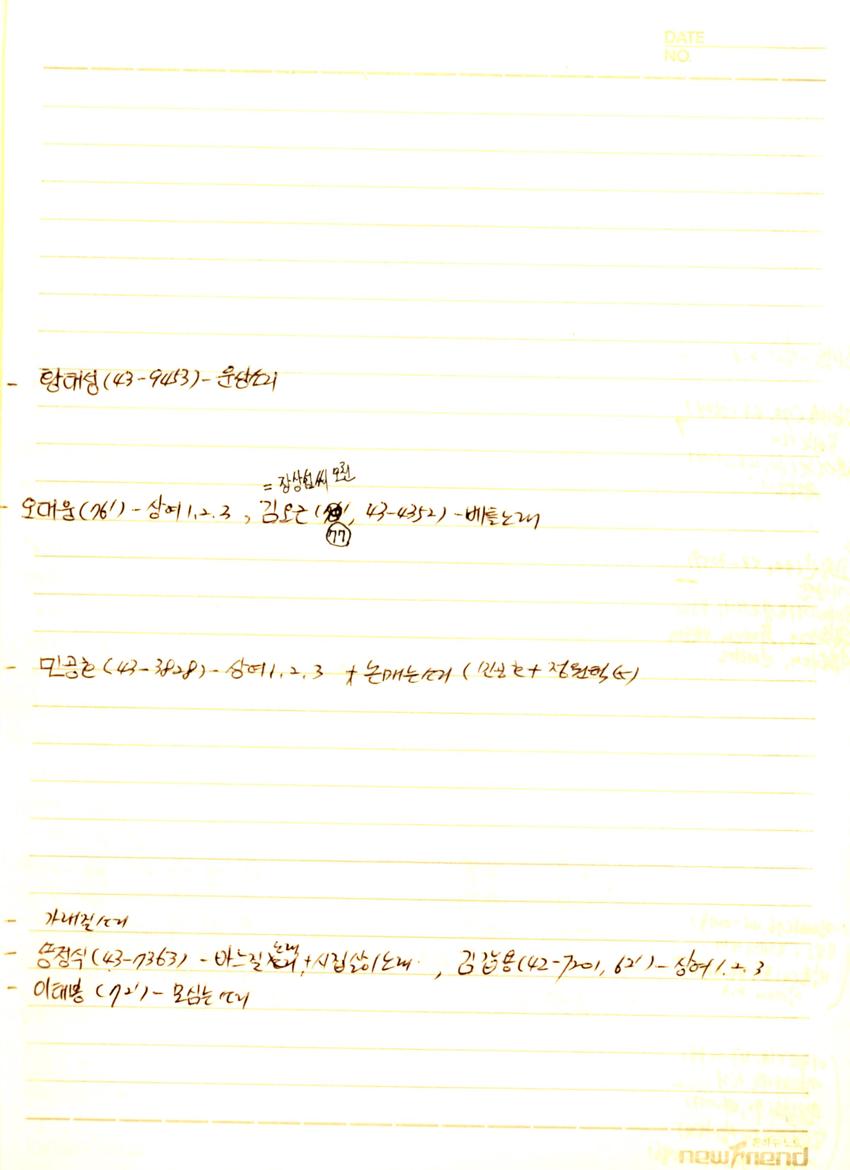 DATE
NO.
- 황해성(43-9453)-운상소리
= 장상업씨 모친
- 오대움(76')-상여1.2.3, 김오근(, 43-4352)-베틀노래
77
- 민공호(43-3828)-상여1.2.3 + 논매는소리 (민공호+정원학(人))
- 가래질소리
노래
- 정식(43-7363) - 바느질 +시집살이노래, 김갑용(42-7201, 62')-상여1.2.3
- 이태봉 (72')-모심는소리
newfriend